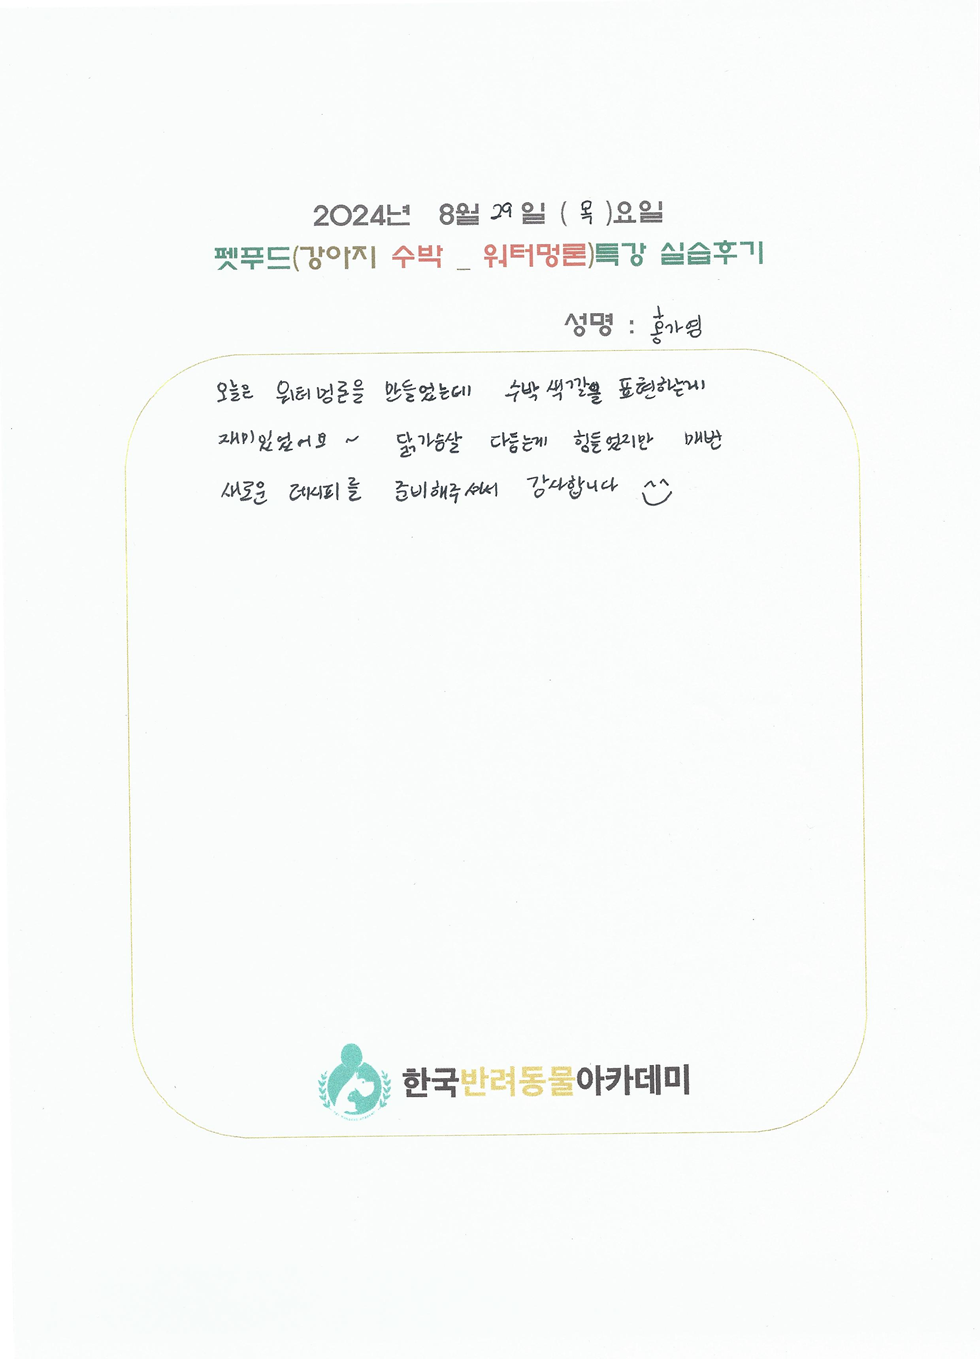 2024년 8월 29일 ( 목 )요일
펫푸드(강아지 수박 _ 워터멍론)특강 실습후기
성명 : 홍가영
오늘은 워터멍론을 만들었는데 수박색깔을 표현하는게
재미있었어요 ~ 닭가슴살 다듬는게 힘들었지만 매번
새로운 레시피를 준비해주셔서 감사합니다 ^^
한국반려동물아카데미